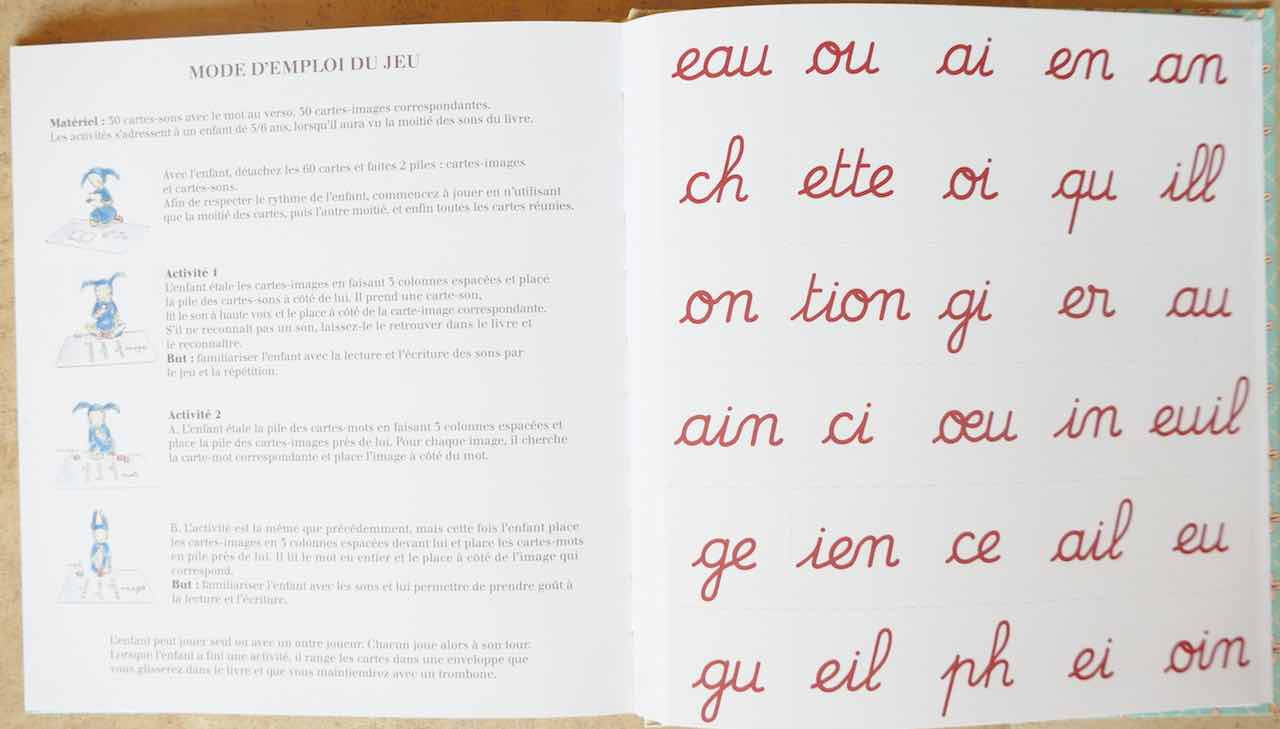 MODE D'EMPLOI DU JEU
Matériel : 30 cartes-sons avec le mot au verso, 30 cartes-images correspondantes.
Les activités s'adressent à un enfant de 5/6 ans, lorsqu'il aura vu la moitié des sons du livre.
Avec l'enfant, détachez les 60 cartes et faites 2 piles : cartes-images
et cartes-sons.
Afin de respecter le rythme de l'enfant, commencez à jouer en n'utilisant
que la moitié des cartes, puis l'autre moitié, et enfin toutes les cartes réunies.
Activité 1
L'enfant étale les cartes-images en faisant 3 colonnes espacées et place
la pile des cartes-sons à côté de lui. Il prend une carte-son,
lit le son à haute voix et le place à côté de la carte-image correspondante.
S'il ne reconnaît pas un son, laissez-le le retrouver dans le livre et
le reconnaître.
But : familiariser l'enfant avec la lecture et l'écriture des sons par
le jeu et la répétition.
Activité 2
A. L'enfant étale la pile des cartes-mots en faisant 3 colonnes espacées et
place la pile des cartes-images près de lui. Pour chaque image, il cherche
la carte-mot correspondante et place l'image à côté du mot.
B. L'activité est la même que précédemment, mais cette fois l'enfant place
les cartes-images en 3 colonnes espacées devant lui et place les cartes-mots
en pile près de lui. Il lit le mot en entier et le place à côté de l'image qui
correspond.
But : familiariser l'enfant avec les sons et lui permettre de prendre goût à
la lecture et l'écriture.
L'enfant peut jouer seul ou avec un autre joueur. Chacun joue alors à son tour.
Lorsque l'enfant a fini une activité, il range les cartes dans une enveloppe que
vous glisserez dans le livre et que vous maintiendrez avec un trombone.
eau ou ai en an
ch ette oi qu ill
on tion gi er au
ain ci oeu in euil
ge ien ce ail eu
gu eil ph ei oin